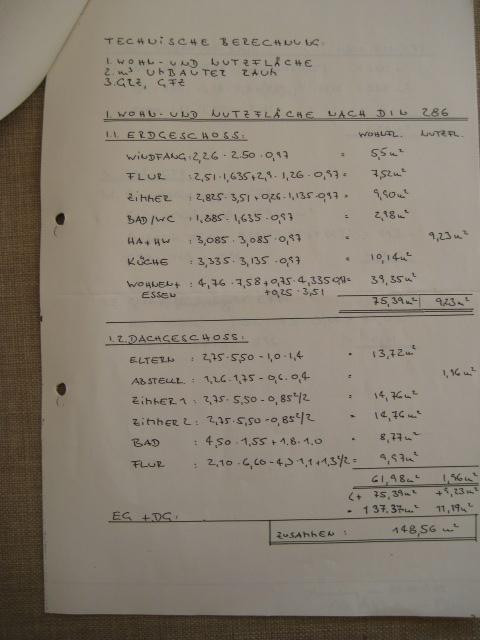 TECHNISCHE BERECHNUNG:
1. WOHN- UND NUTZFLÄCHE
2. m³ UMBAUTER RAUM
3. GRZ, GFZ
1. WOHN- UND NUTZFLÄCHE NACH DIN 286
WOHNFL. NUTZFL.
1.1. ERDGESCHOSS:
WINDFANG: 2,26 · 2.50 · 0,97 = 5,5 m²
FLUR : 2,51 · 1,635 + 2,9 · 1,26 · 0,97 = 7,52 m²
ZIMMER : 2,825 · 3,51 + 0,26 · 1,135 · 0,97 = 9,90 m²
BAD/WC : 1,885 · 1,635 · 0,97 = 2,98 m²
HA + HW : 3,085 · 3,085 · 0,97 = 9,23 m²
KÜCHE : 3,335 · 3,135 · 0,97 = 10,14 m²
WOHNEN + : 4,76 · 7,58 + 0,75 · 4,335 0,97 = 39,35 m²
ESSEN + 0,25 · 3,51
75,39 m² 9,23 m²
1.2. DACHGESCHOSS:
ELTERN : 2,75 · 5,50 - 1,0 · 1,4 = 13,72 m²
ABSTELLR. : 1,26 · 1,75 - 0,6 · 0,4 = 1,96 m²
ZIMMER 1 : 2,75 · 5,50 - 0,85²/2 = 14,76 m²
ZIMMER 2 : 2,75 · 5,50 - 0,85²/2 = 14,76 m²
BAD : 4,50 · 1,55 + 1.8 · 1.0 = 8,77 m²
FLUR : 2,10 · 6,60 - 4,3 · 1,1 + 1,3²/2 = 9,97 m²
61,98 m² 1,96 m²
(+ 75,39 m² + 9,23 m²
EG + DG: = 137.37 m² 11,19 m²
ZUSAMMEN : 148,56 m²